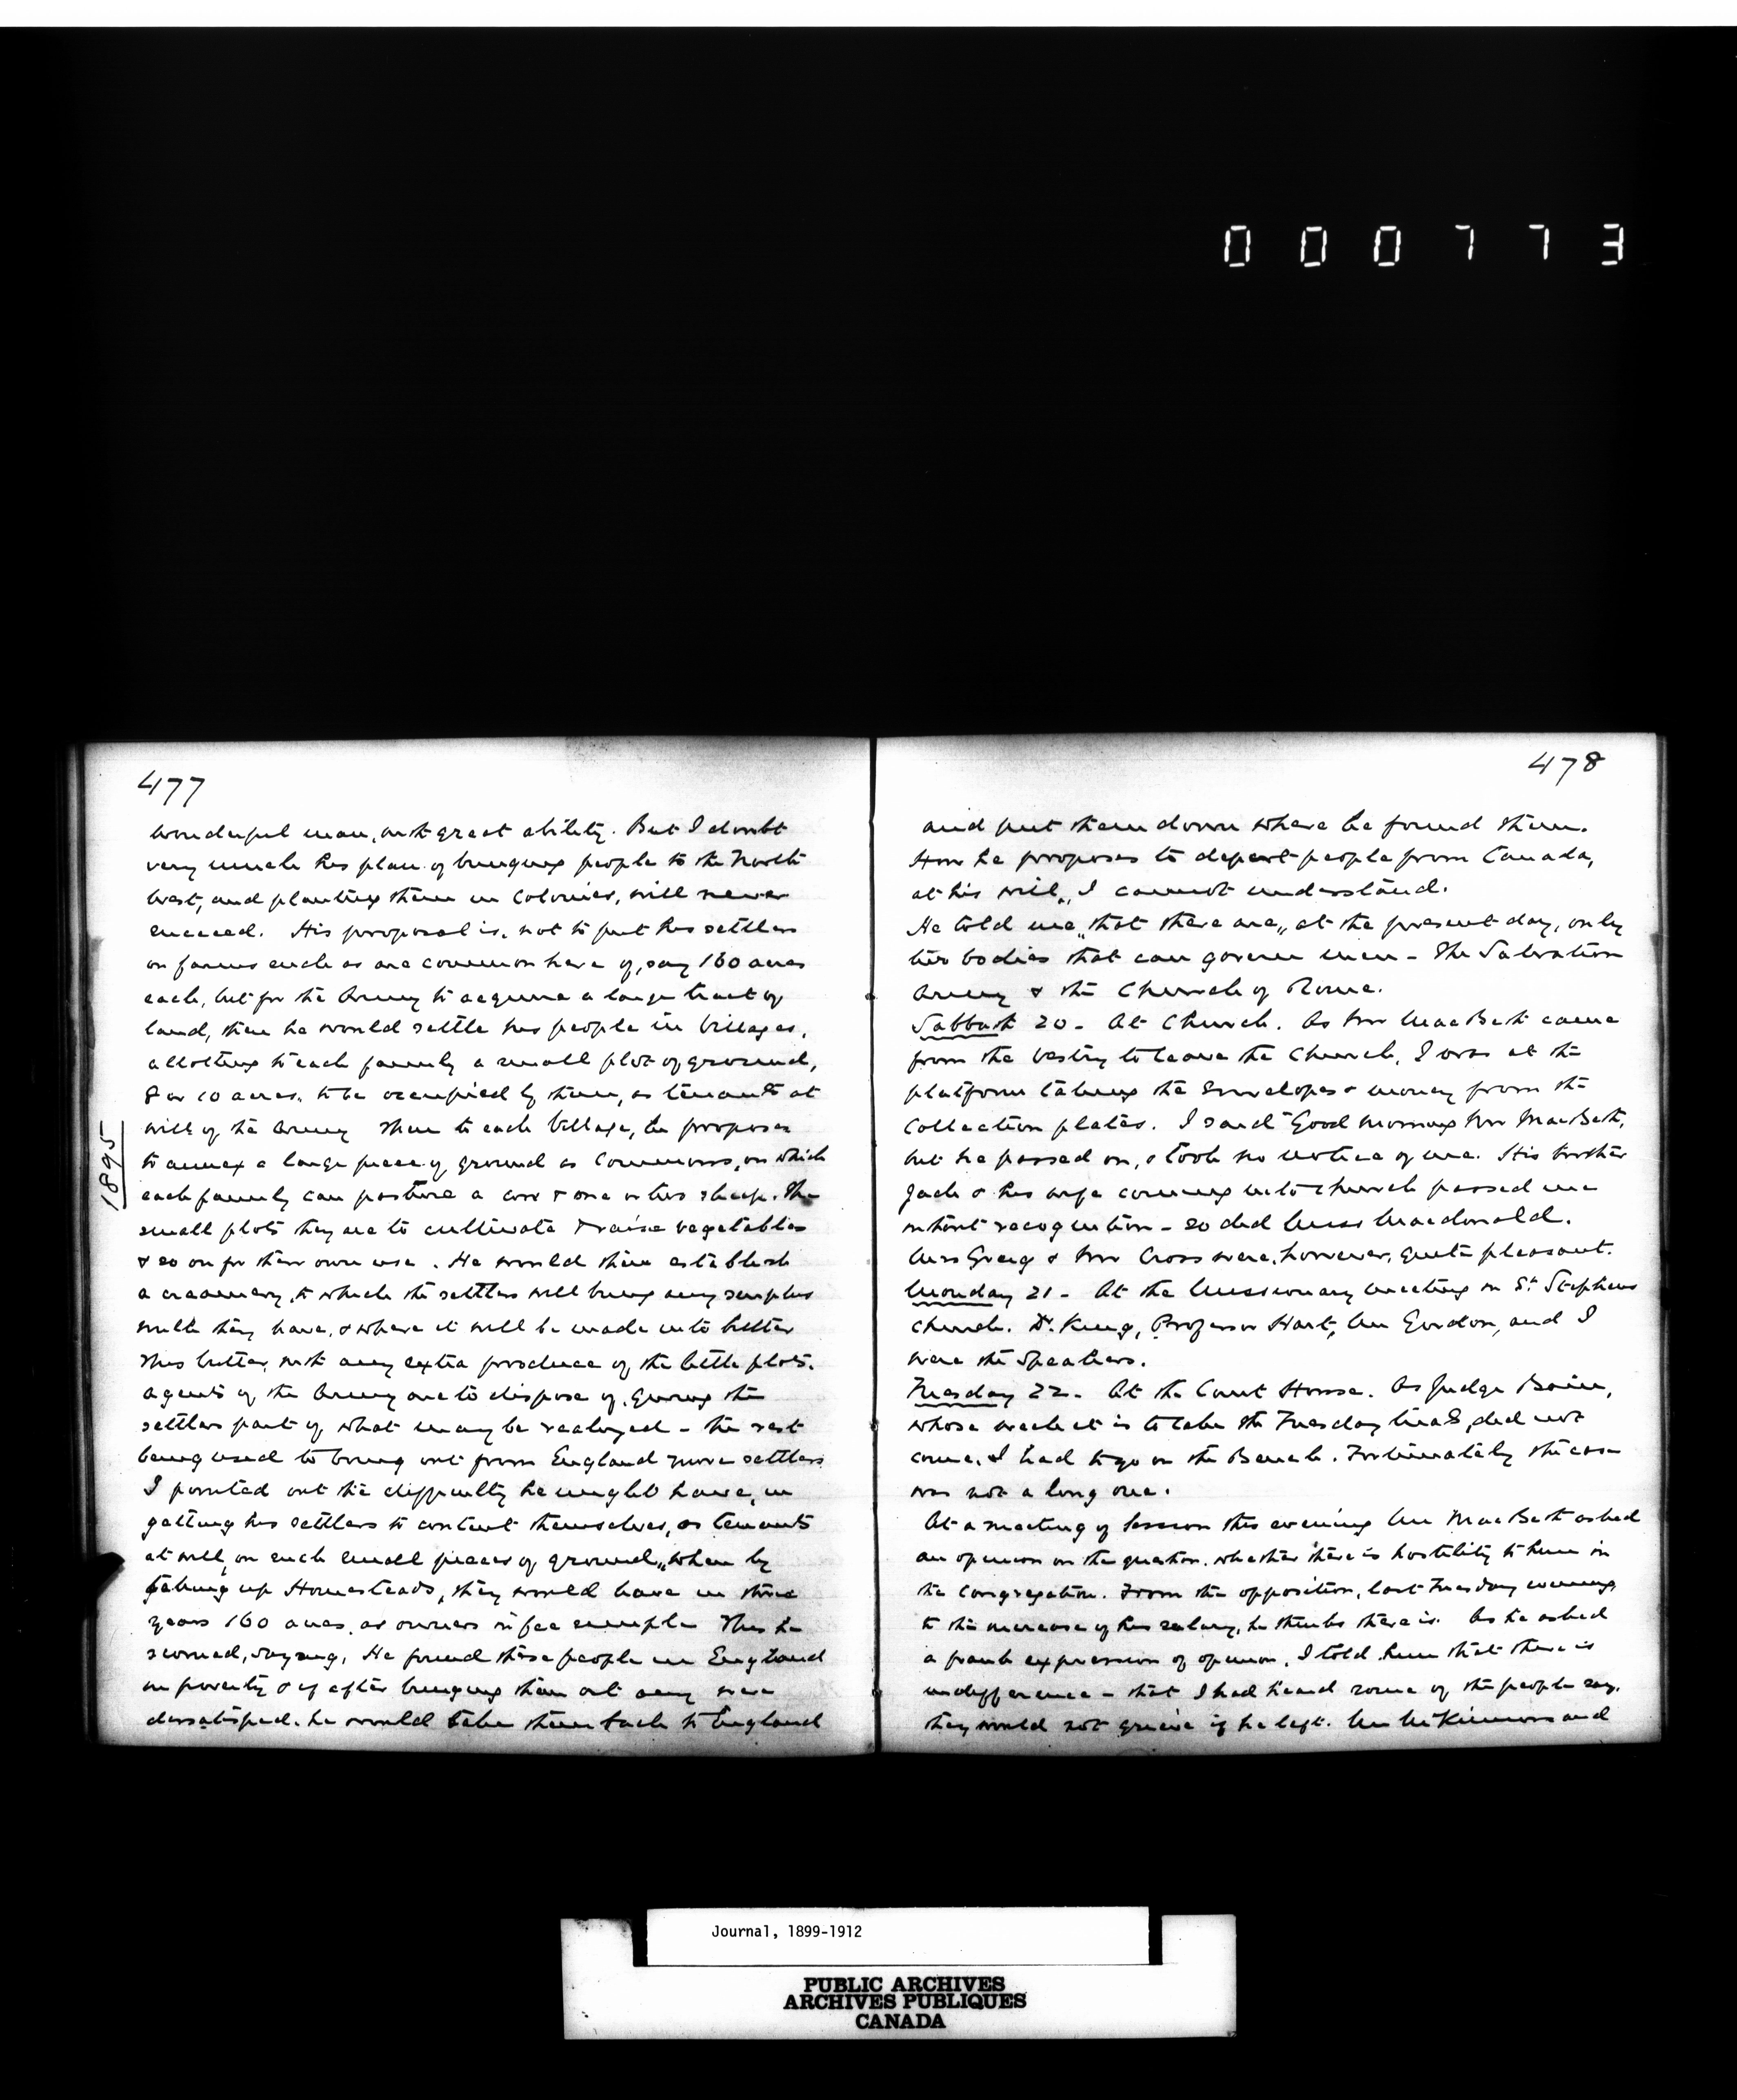 000773
477
wonderful man, with great ability. But I doubt
very much his plan of bringing people to the North
West, and planting them in Colonies, will never
succeed. His proposal is, not to put his settlers
on farms such as are common here of, say 160 acres
each, but for the Army to acquire a large tract of
land, then he would settle his people in Villages,
allotting to each family a small plot of ground,
8 or 10 acres, to be occupied by them, as tenants at
will of the Army Then to each Village, he proposes
to annex a large piece of ground as Commons, on which
each family can pasture a cow & one or two sheep. The
small plots they are to cultivate & raise vegetables
& so on for their own use. He would then establish
a creamery, to which the settlers will bring any surplus
milk they have, & where it will be made into butter
This butter, with any extra produce of the little plots,
agents of the Army are to dispose of, giving the
settlers part of what may be realized - the rest
being used to bring out from England more settlers
I pointed out the difficulty he might have, in
getting his settlers to content themselves, as tenants
at will, on such small pieces of ground, when by
taking up Homesteads, they would have in three
years 160 acres, as owners in fee simple This he
scorned, saying, He found these people in England
in poverty & if after bringing them out any were
dissatisfied, he would take them back to England
1895
478
and put them down where he found them.
How he proposes to deport people from Canada,
at his will, I cannot understand.
He told me, that there are, at the present day, only
two bodies that can govern men - The Salvation
Army & the Church of Rome.
Sabbath 20 - At Church. As Mr MacBeth came
from the vestry to leave the Church, I was at the
platform taking the Envelopes & money from the
Collection plates. I said "Good morning Mr MacBeth,
but he passed on, & took no notice of me. His brother
Jack & his wife coming into church passed me
without recognition - so did Miss Macdonald.
Mrs Greig & Mr Cross were, however, quite pleasant.
Monday 21 - At the Missionary meeting in St. Stephens
church. Dr. King, Professor Hart, Mr Gordon, and I
were the Speakers.
Tuesday 22 - At the Court House. As Judge Bain,
whose week it is to take the Tuesday lists, did not
come, I had to go on the Bench. Fortunately the case
was not a long one.
At a meeting of Session this evening Mr MacBeth asked
an opinion on the question, whether there is hostility to him in
the Congregation. From the opposition, last Tuesday evening
to the increase of his salary, he thinks there is. As he asked
a frank expression of opinion, I told him that there is
indifference - that I had heard some of the people say,
they would not grieve if he left. Mr McKinnon and
Journal, 1899-1912
PUBLIC ARCHIVES
ARCHIVES PUBLIQUES
CANADA